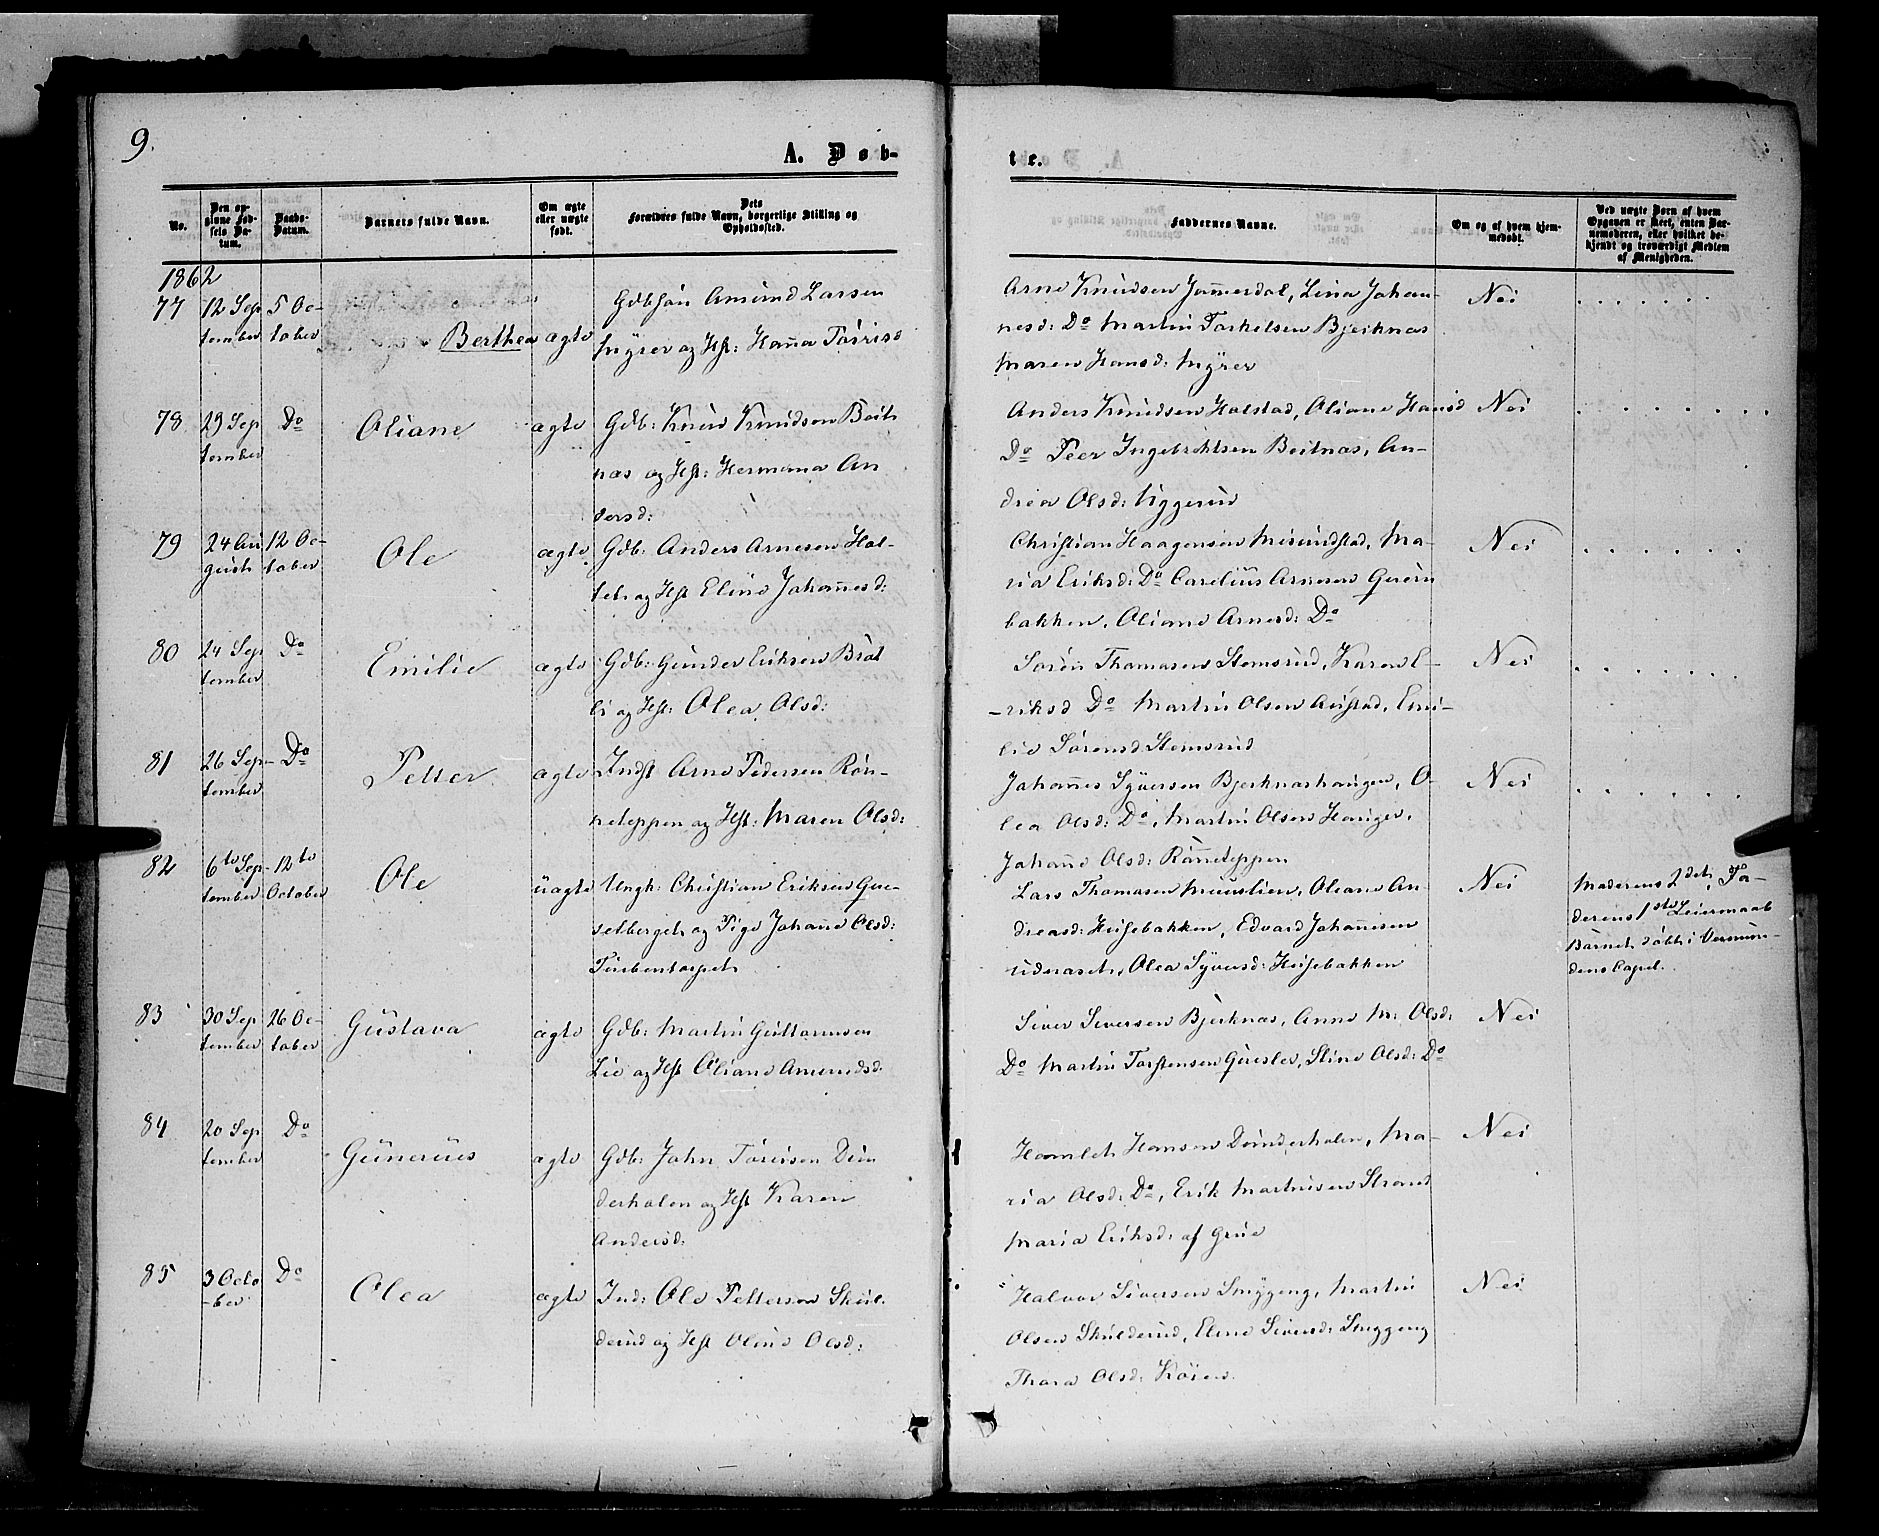 9.
A. Døb-
te.
No.
Den op-
givne Fød-
sels Da-
tum.
Daabs-
Datum.
Barnets fulde Navn.
Om ægte
eller uægte
født.
Dets
Forældres fulde Navn, borgerlige Stilling og
Opholdssted.
Faddernes Navne.
Om og af hvem hjem-
medøbt.
Ved uægte Børn af hvem
Opgaven er skeet, enten Bar-
nemoderen, eller hvilket be-
kjendt og troværdigt Medlem
af Menigheden.
1862
77
12 Sep
tember
5 Oc-
tober
Berthea
ægte
Gdbsøn Amund Larsen
Myrer og Hst: Hana Torrisd
Arne Knudsen Jammerdal, Lina Johan-
nesd: Do Martin Torkelsen Bjerknæs
Maren Hansd: Myrer
Nei
78
29 Sep
tember
Do
Oliane
ægte
Gdb: Knud Knudsen Beit
næs og Hst: Hermana An
dersd:
Anders Knudsen Halstad, Oliane Hansd
Do Peer Ingebrihtsen Beitnæs, An-
drea Olsd: Uggerud
Nei
79
24 Au
gust
12 Oc-
tober
Ole
ægte
Gdb: Anders Arnesen Hol-
tet og Hst Eline Johannesd:
Christian Haagensen Mesundstad, Ma-
ria Eriksd: Do Carelius Arnesen
bakken, Oliane Arnesd: Do
Nei
80
24 Sep
tember
Do
Emilie
ægte
Gdb: Gunder Eriksen Brat
li og Hst: Olea Olsd:
Soren Thomasen Stemsrud, Karen E-
-riksd Do Martin Olsen Austad, Emi-
lie Sørensd Stemsrud
Nei
81
26 Sep-
tember
Do
Petter
ægte
Indst Arne Pedersen Røn-
neteppen og Hst: Maren Olsd:
Johannes Syversen Bjerknæshaugen, O-
lea Olsd: Do, Martin Olsen Hauger,
Johanne Olsd: Rønneteppen
Nei
82
6te Sep-
tember
12te
October
Ole
uægte
Ungk: Christian Eriksen Gre-
selberget og Pige Johanne Olsd:
Turbentorpet
Lars Thomasen Muustien, Oliane An-
dreasd: Heisebakken, Edvard Johannesen
Olea Syversd: Heisebakken
Nei
Moderens 2det, Fa-
derens 1ste Leiermaal
Barnet døbt i Vermun-
dens Capel.
83
30 Sep
tember
26 Oc-
tober
Gustava
ægte
Gdb: Martin Guttormsen
Lie og Hst Oliane Amundsd.
Siver Siversen Bjerknæs, Anne M: Olsd:
Do Martin Torstensen Gresler, Stine Olsd: Do
Nei
84
20 Sep
tember
Do
Gunerius
ægte
Gdb: John Torersen Dun
derholen og Hst Karen
Andersd:
Hamlet Hansen Dunderholen, Ma-
ria Olsd: Do, Erik Martinsen Strand
Maria Eriksd: af Grue
Nei
85
3 Octo
-ber
Do
Olea
ægte
Ind: Ole Pettersen Skul-
derud og Hst Oline Olsd:
Halvor Siversen Smygeng, Martin
Olsen Skulderud, Eline Siversd: Smygeng
Thora Olsd: Koien
Nei